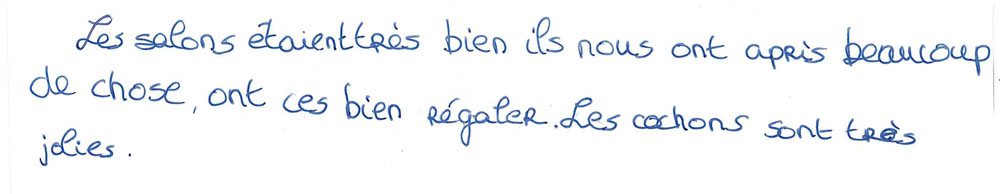 Les salons étaient très bien ils nous ont apris beaucoup
de chose, ont ces bien régaler. Les cochons sont très
jolies.